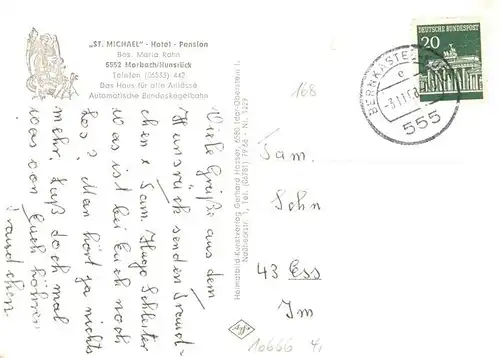 "ST. MICHAEL" - Hotel - Pension
Bes. Maria Rahn
5552 Morbach/Hunsrück
Telefon (06533) 442
Das Haus für alle Anlässe
Automatische Bundeskegelbahn
Viele Grüße aus dem
Hunsrück senden Traud-
chen + Fam. Hugo
was ist bei Euch noch
los? Man hört ja nichts
mehr, laßt doch mal
was von Euch hören
Traudchen.
Heimatbild-Kunstverlag Gerhard Hosser, 6580 Idar-Oberstein 1,
1, Tel. (06781) 79 66 - Nr. 1329
168
DEUTSCHE BUNDESPOST
20
BERNKASTEL
e
555
Fam.
Sehn
43 Ess
Im
effge
10666